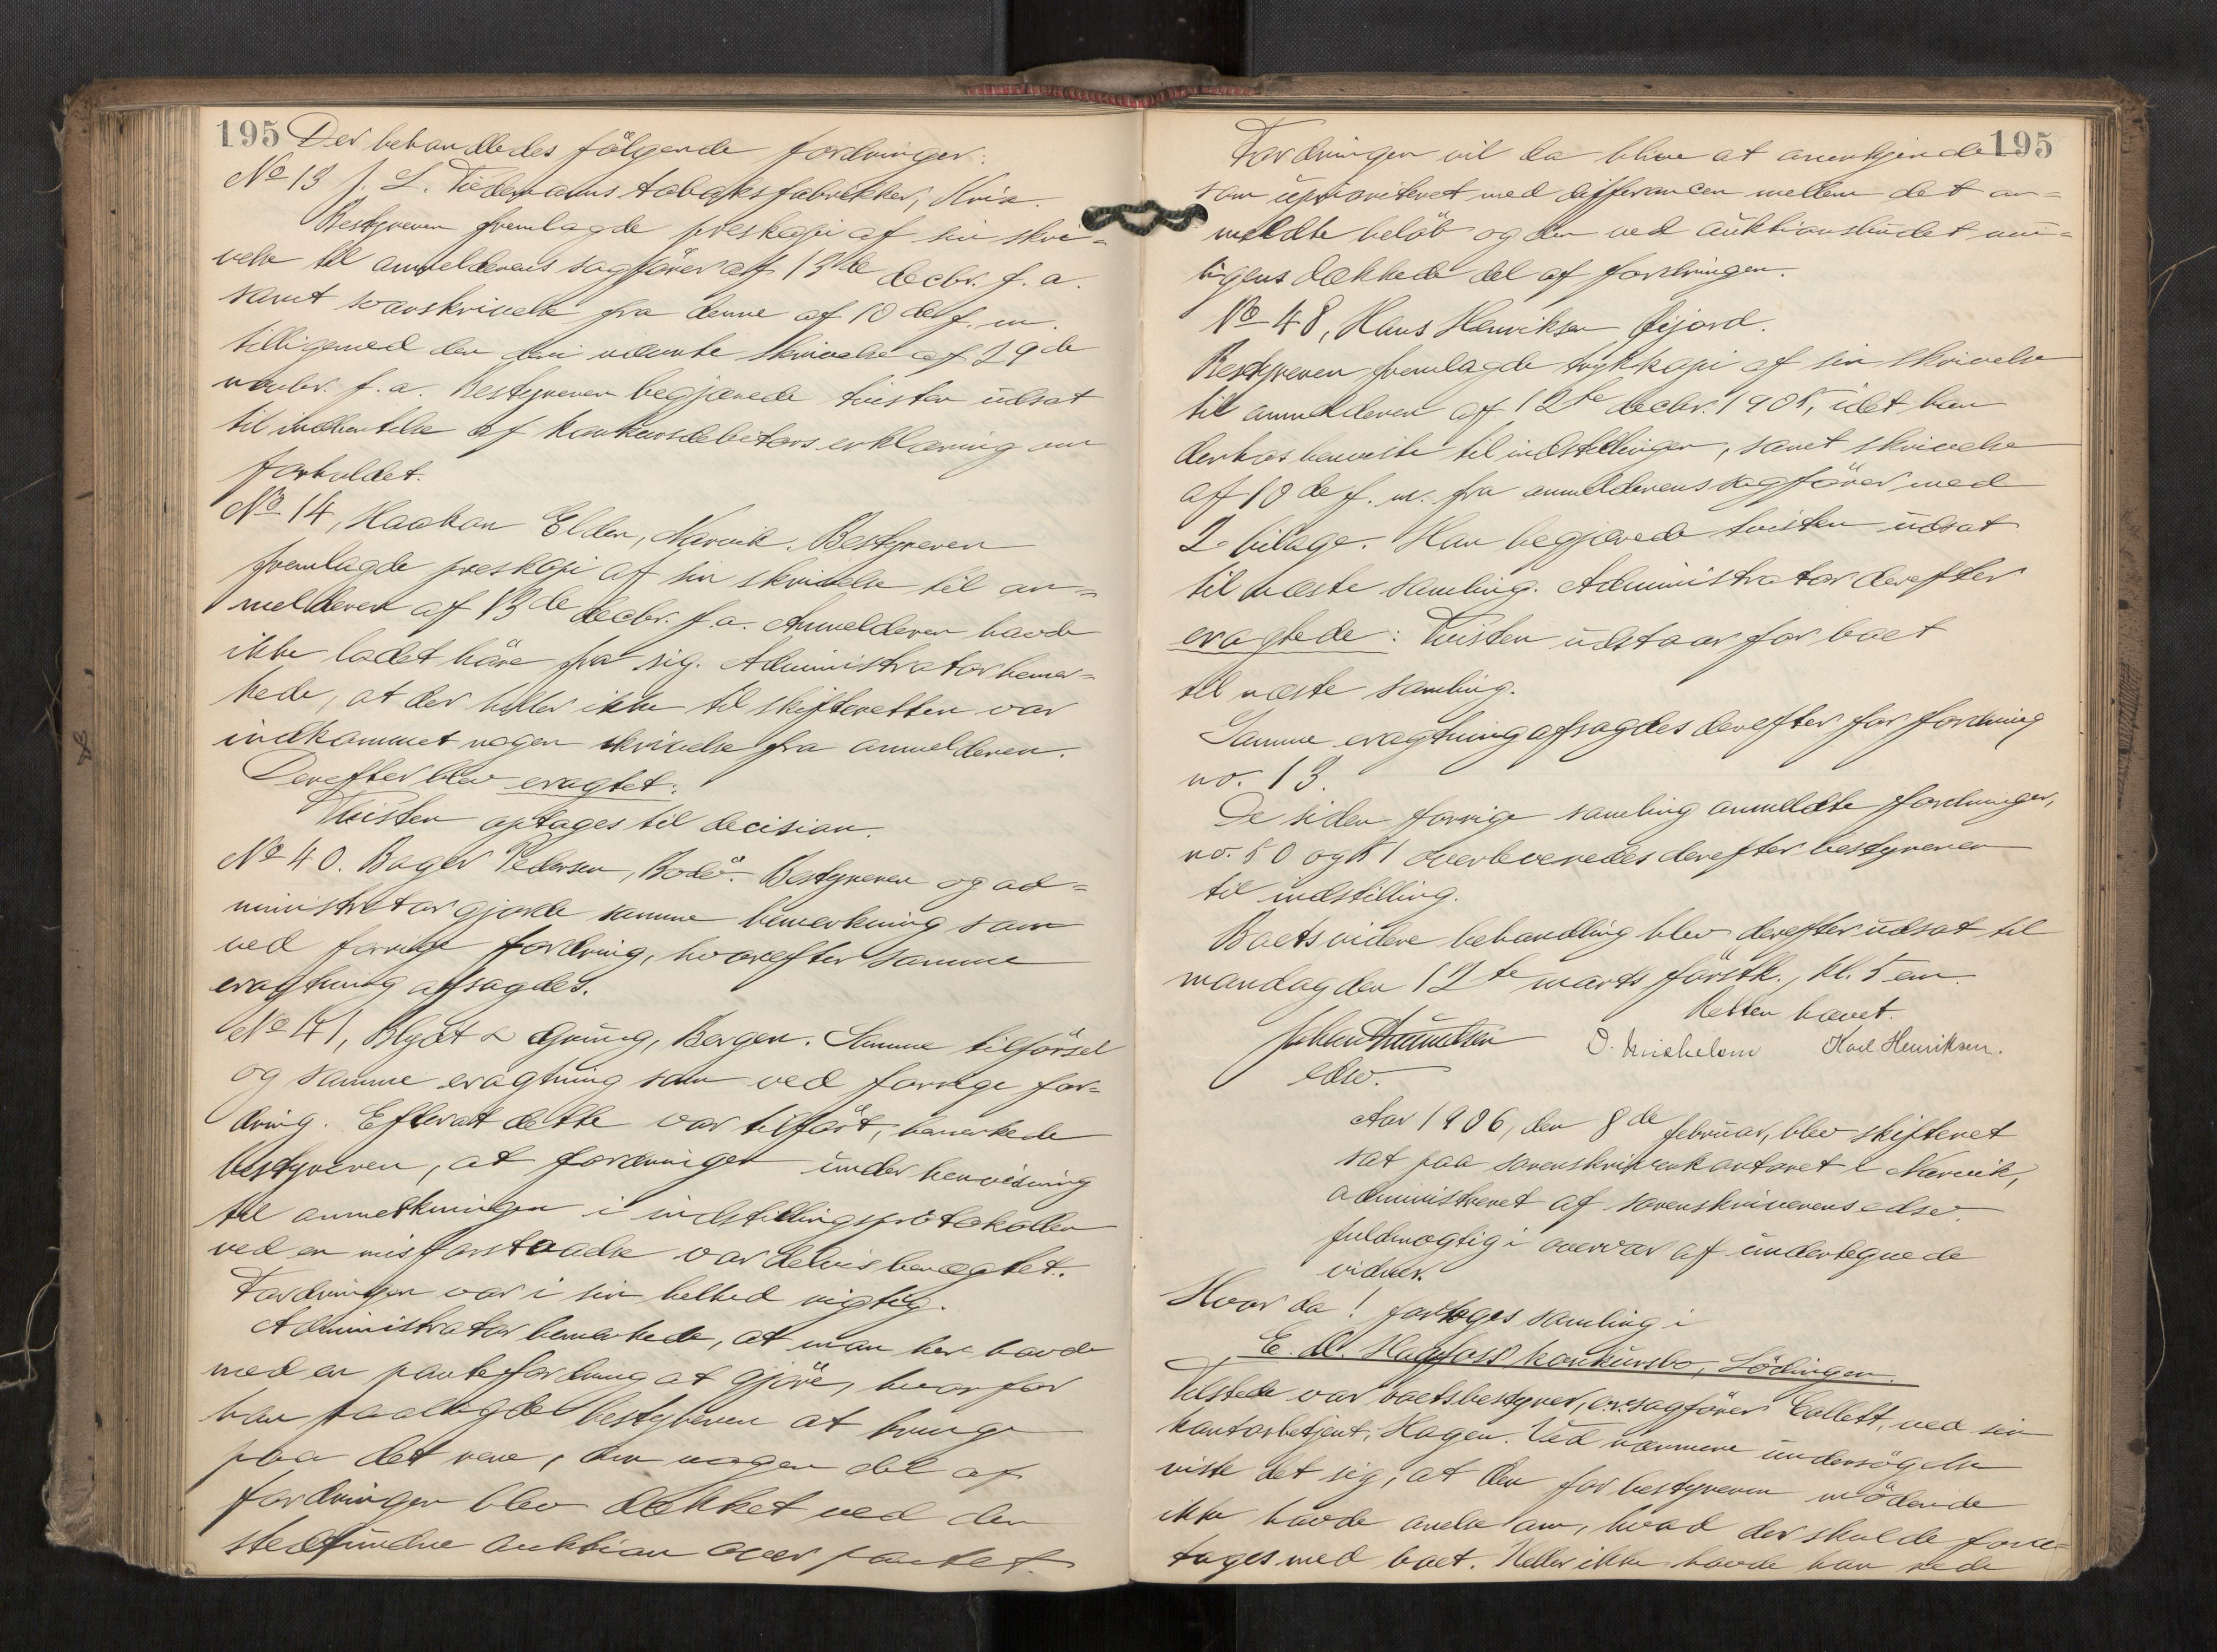 195 Der behandledes fölgende fordringer:
No 13 J. L. Tiedemanns tobaksfabrikker, Kr.ia.
Bestyreren fremlagde preskopi af sin skri-
velse til anmelderens sagförer af 13de decbr. f. a.
samt svarskrivelse fra denne af 10de f. m.
tilligemed den deri nævnte skrivelse af 29de
novbr. f. a. Bestyreren begjærede tvisten udsat
til indhentelse af konkursdebitors erklæring om
forholdet.
No 14, Haakon Elden, Narvik. Bestyreren
fremlagde preskopi af sin skrivelse til an-
melderen af 13de decbr. f. a. Anmelderen havde
ikke ladet höre fra sig. Administrator bemær-
kede, at der heller ikke til skifteretten var
indkommet nogen skrivelse fra anmelderen.
Derefter blev eragtet:
Tvisten optages til decision.
No 40. Bager Pedersen, Bodö. Bestyreren og ad-
ministrator gjorde samme bemerkning som
ved forrige fordring, hvorefter samme
eragtning afsagdes.
No 41, Blydt & Grung, Bergen. Samme tilförsel
og samme eragtning som ved forrige for-
dring. Efterat dette var tilfört, bemerkede
bestyreren, at fordringen under henvisning
til anmerkningen i indstillingsprotokollen
ved en misforstaaelse var delvis benegtet.
Fordringen var i sin helhed rigtig.
Administrator bemerkede, at man her havde
med en pantefordring at gjöre, hvorfor
han paalagde bestyreren at bringe
paa det rene, om nogen del af
fordringen blev dækket ved den
stedfundne auktion over pantet.
195
Fordringen vil da blive at anerkjende
som uprioriteret med differancen mellem det an-
meldte belöb og den ved auktionsbudet mu-
ligens dækkede del af fordringen.
No 48, Hans Henriksen Ejjord.
Bestyreren fremlagde trykkopi af sin skrivelse
til anmelderen af 12te decbr. 1905, idet han
derhos henviste til indstillingen, samt skrivelse
af 10de f. m. fra anmelderens sagförer med
2 bilage. Han begjærede tvisten udsat
til næste samling. Administrator derefter
eragtede: Tvisten udstaar for boet
til næste samling.
Samme eragtning afsagdes derefter for fordring
no. 13.
De siden forrige samling anmeldte fordringer,
no. 50 og 51 overleveredes derefter bestyreren
til indstilling.
Boets videre behandling blev derefter udsat til
mandag den 12te marts förstk., kl. 5 em.
Retten hævet.
Johan Knudtsen O. Michelsen Karl Henriksen.
edsv.
Aar 1906, den 8de februar, blev skifteret
sat paa sorenskriverkontoret i Narvik,
administreret af sorenskriverens edsv.
fuldmægtig i overvær af undertegnede
vidner.
Hvor da! foretoges samling i
E. A. Hagfoss konkursbo, Lödingen.
Tilstede var boets bestyrer, o.r.sagförer Collett, ved sin
kontorbetjent, Hagen. Ved nærmere undersögelse
viste det sig, at den for bestyreren mödende
ikke havde anelse om, hvad der skulde fore-
tages med boet. Heller ikke havde han rede